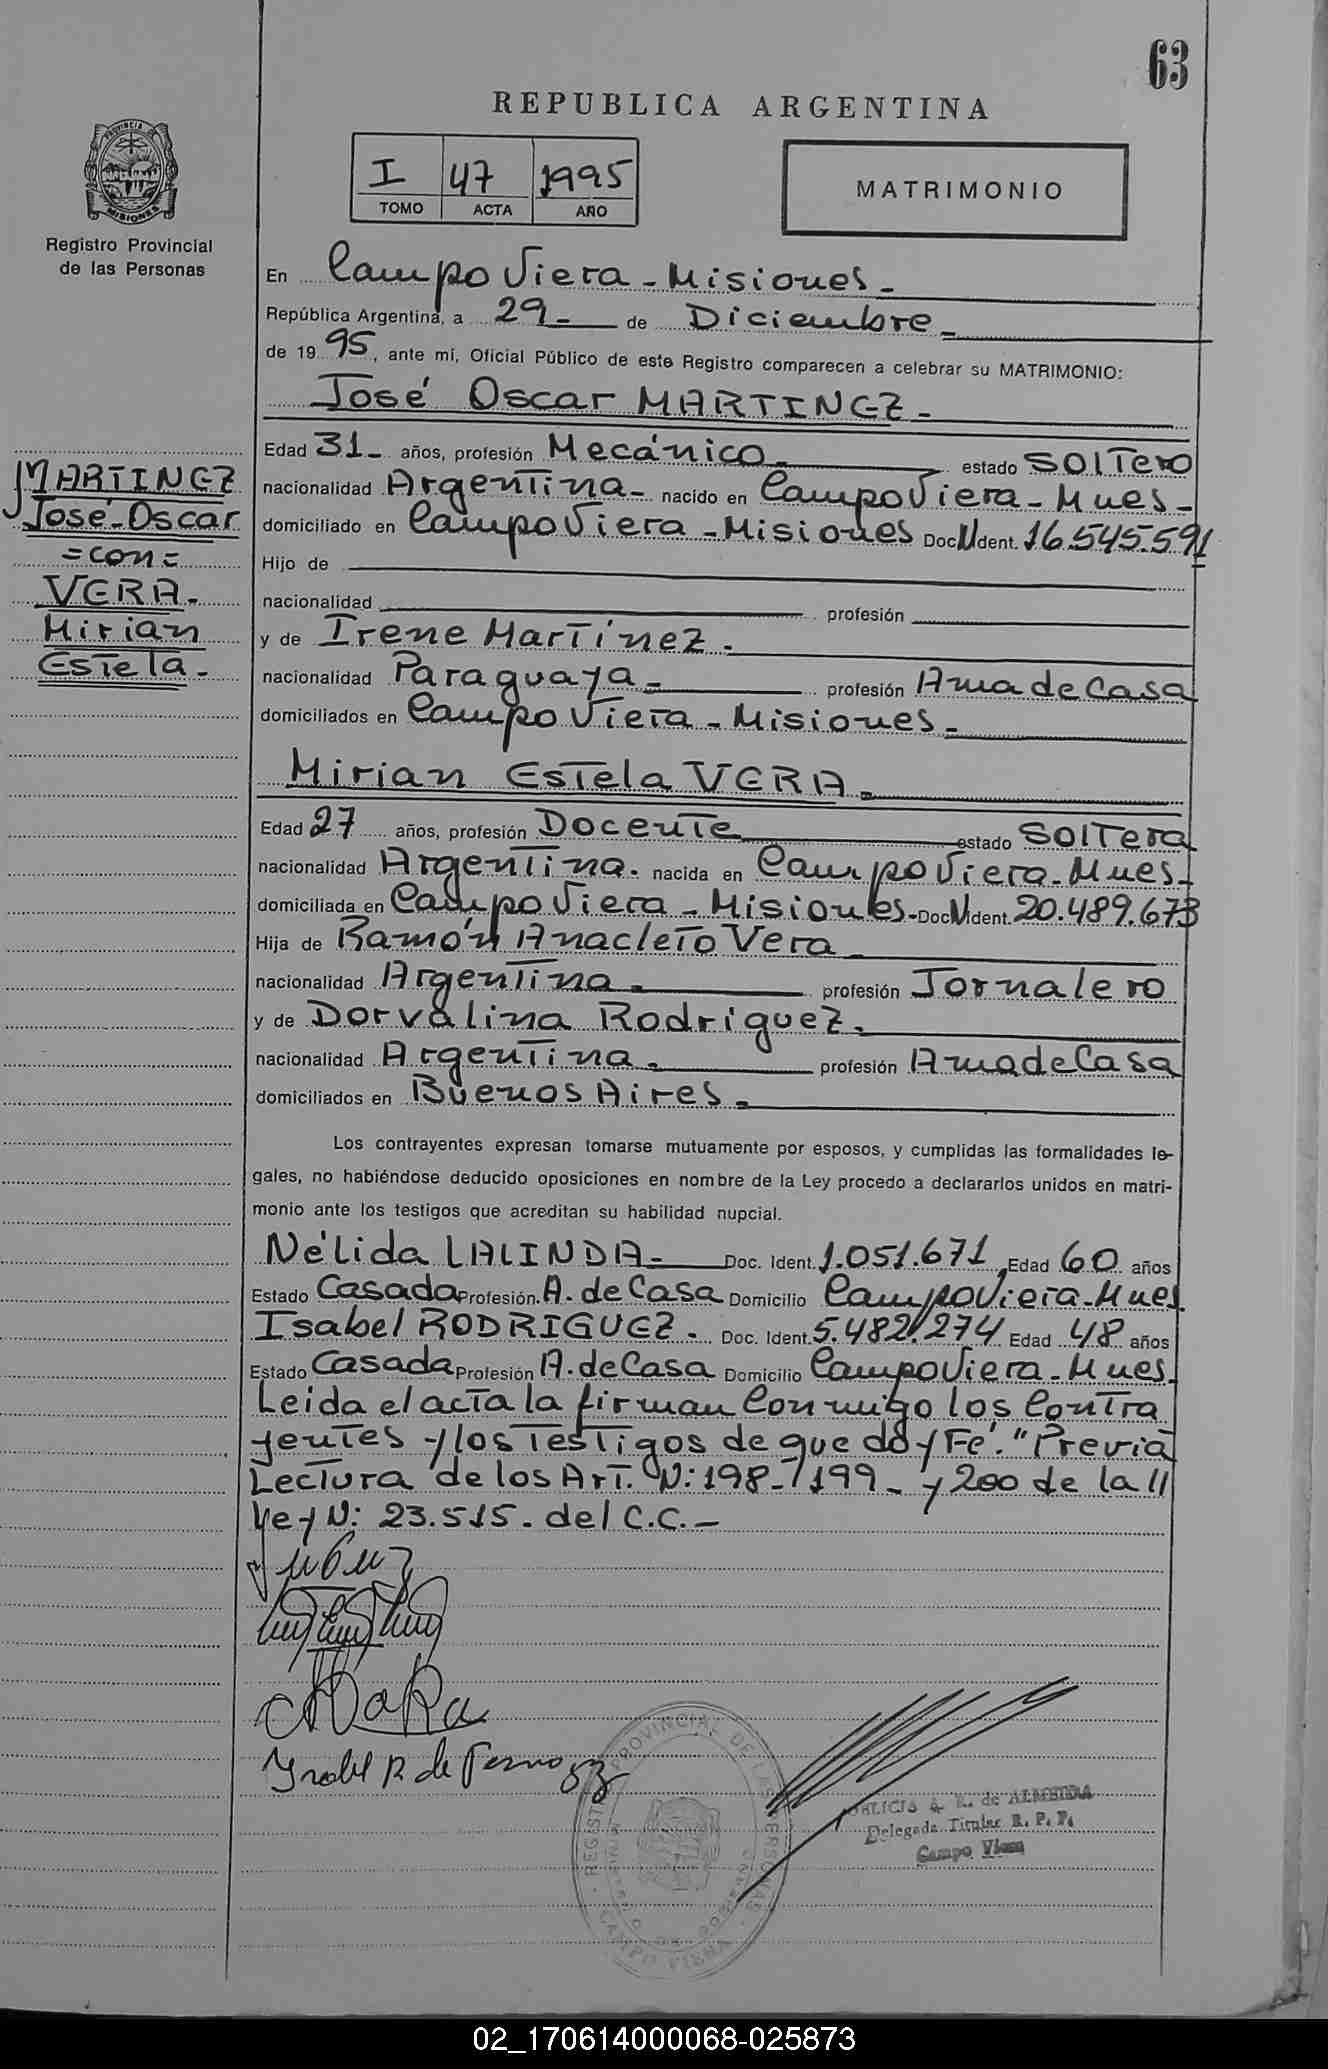 63
REPUBLICA ARGENTINA
I 47 1995
TOMO ACTA AÑO
MATRIMONIO
PROVINCIA DE
MISIONES
Registro Provincial
de las Personas
En Campo Viera - Misiones -
República Argentina, a 29 - de Diciembre -
de 19 95, ante mi, Oficial Público de este Registro comparecen a celebrar su MATRIMONIO:
José Oscar MARTINEZ -
Edad 31 - años, profesión Mecánico - estado Soltero
nacionalidad Argentina - nacido en Campo Viera - Mnes -
domiciliado en Campo Viera - Misiones Doc N Ident. 16.545.591
Hijo de
nacionalidad profesión
y de Irene Martínez -
nacionalidad Paraguaya - profesión Ama de Casa
domiciliados en Campo Viera - Misiones -
MARTINEZ
José - Oscar
= con =
VERA -
Mirian
Estela -
Mirian Estela VERA -
Edad 27 años, profesión Docente estado Soltera
nacionalidad Argentina. nacida en Campo Viera - Mnes -
domiciliada en Campo Viera - Misiones - Doc N Ident. 20.489.673
Hija de Ramón Anacleto Vera
nacionalidad Argentina - profesión Jornalero
y de Dorvalina Rodriguez.
nacionalidad Argentina. profesión Ama de Casa
domiciliados en Buenos Aires -
Los contrayentes expresan tomarse mutuamente por esposos, y cumplidas las formalidades le-
gales, no habiéndose deducido oposiciones en nombre de la Ley procedo a declararlos unidos en matri-
monio ante los testigos que acreditan su habilidad nupcial.
Nélida LALINDA - Doc. Ident. 1.051.671 Edad 60 años
Estado Casada Profesión A. de Casa Domicilio Campo Viera - Mnes
Isabel RODRIGUEZ. Doc. Ident. 5.482.274 Edad 48 años
Estado Casada Profesión A. de Casa Domicilio Campo Viera - Mnes.
Leida el acta la firman Conmigo los Contra
yentes y los Testigos de que doy Fé. "Previa
Lectura de los Art. N: 198 - 199 - y 200 de la ll
Ley N: 23.515. del C.C. -
Isabel R de
REGISTRO PROVINCIAL DE LAS PERSONAS
CAMPO VIERA
A. R. de ALMEIDA
Delegada Titular R. P. P.
Campo Viera
02_170614000068-025873